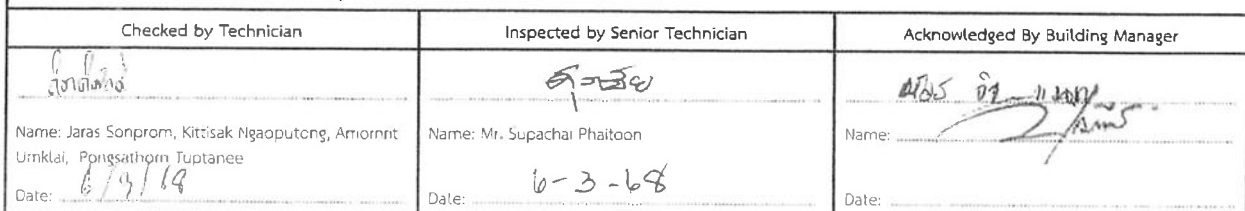 Checked by Technician
Inspected by Senior Technician
Acknowledged By Building Manager
ศุภชัย
Name: Jaras Sonprom, Kittisak Ngaoputong, Amornrit
Umklai, Pongsathorn Tuptanee
Name: Mr. Supachai Phaitoon
Name:
Date: 6/3/68
Date: 6-3-68
Date: